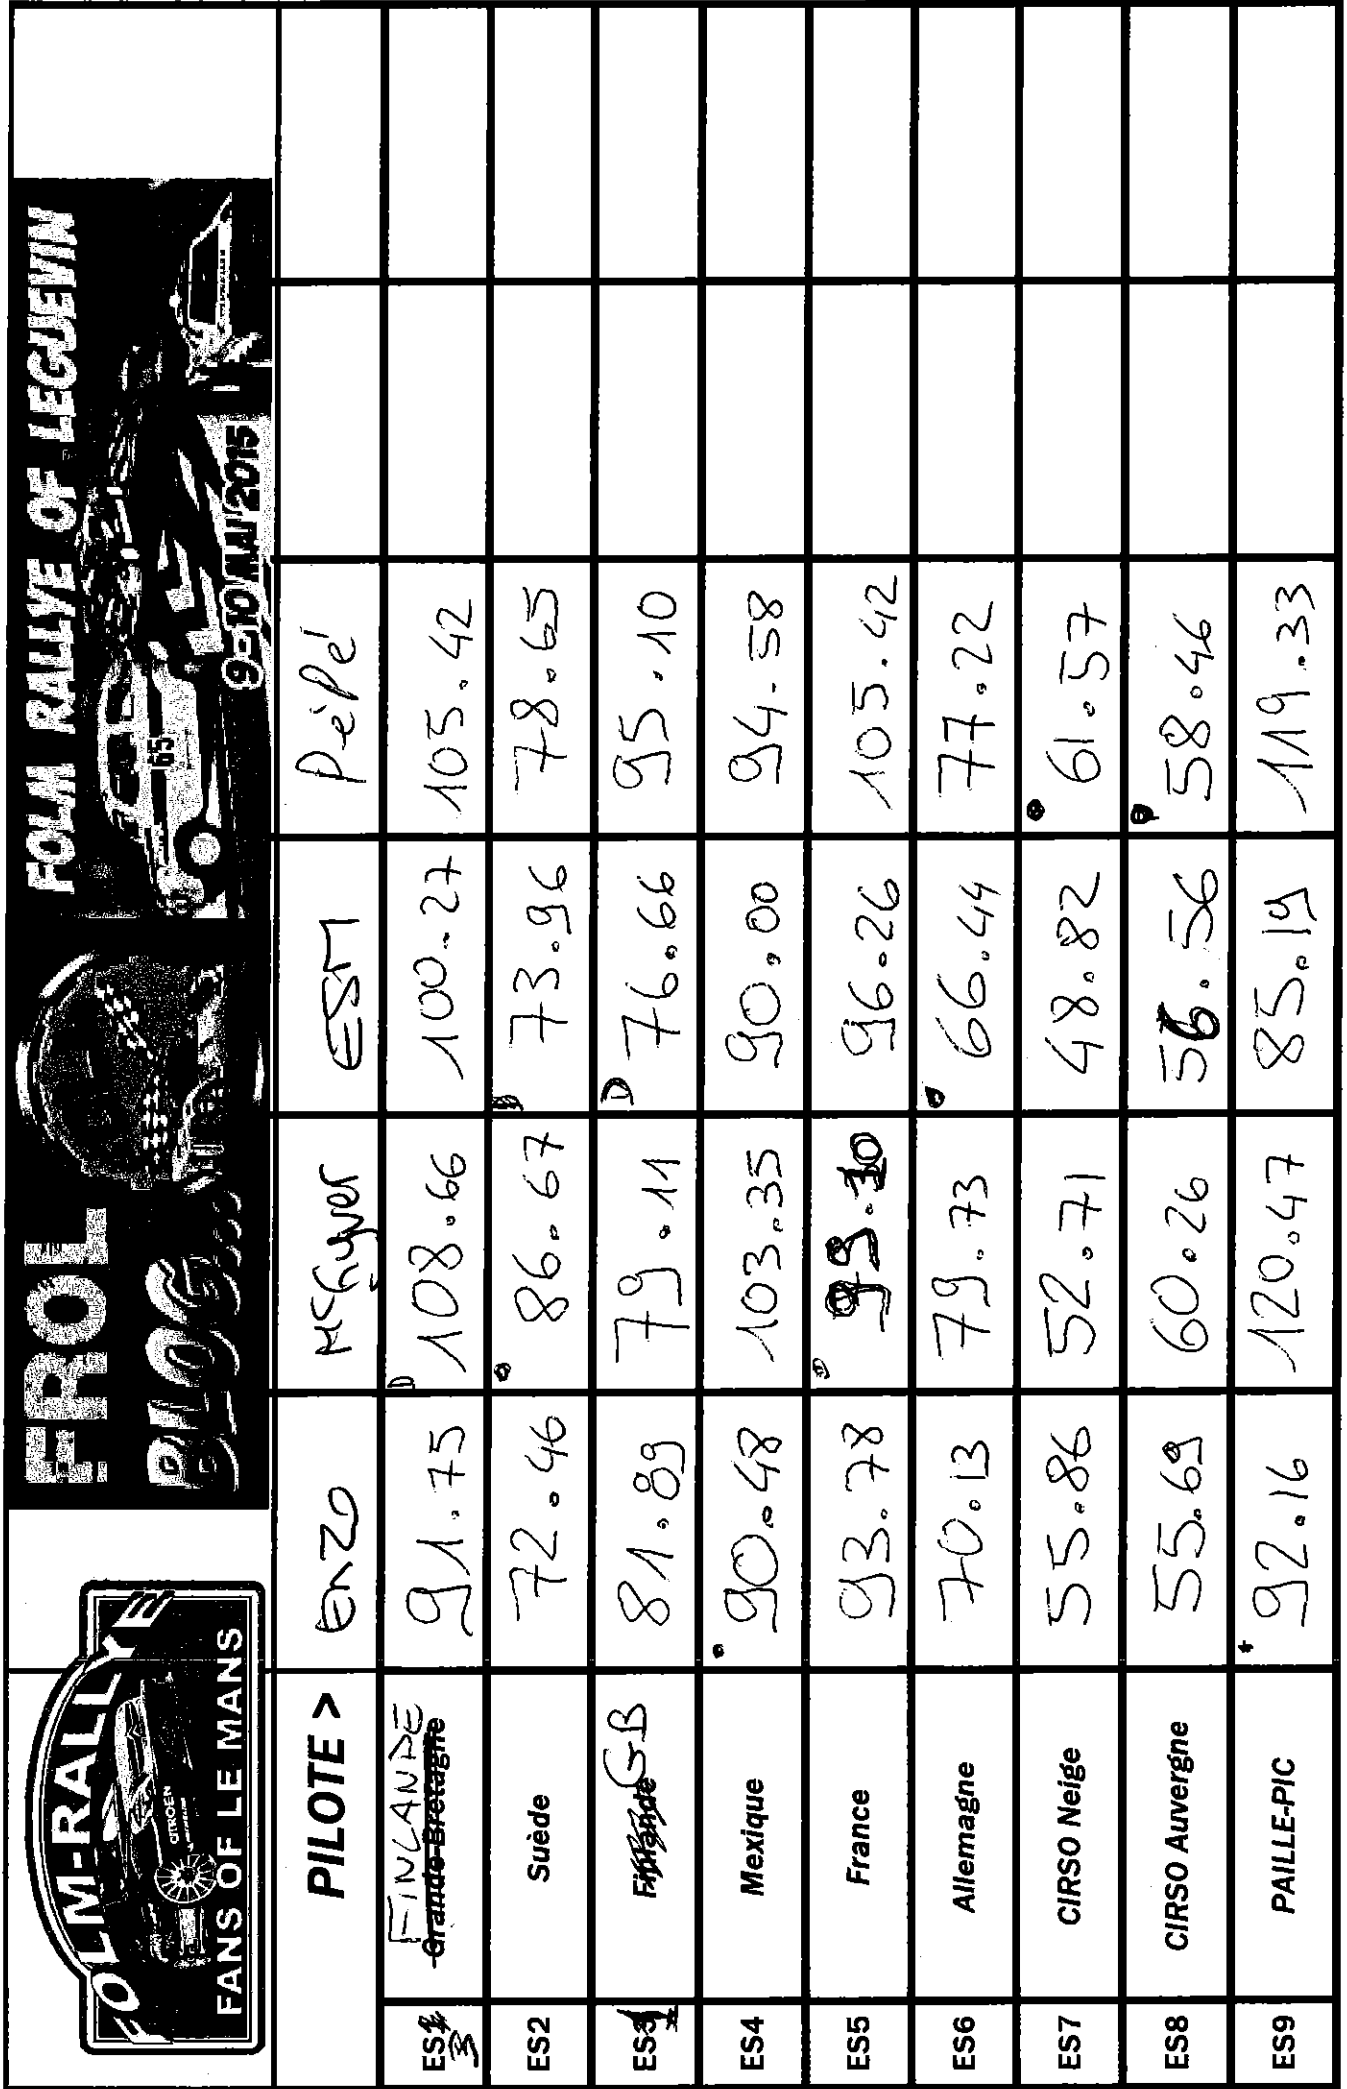 FOLM-RALLYE
FANS OF LE MANS
CITROEN
FROL
BLOG...
FOLM RALLYE OF LEGUEVIN
65
9-10 MAI 2015
PILOTE > Enzo McGyver ESM PéPé
ES1 3 Grande-Bretagne FINLANDE 91.75 108.66 100.27 105.42
ES2 Suède 72.46 86.67 73.96 78.65
ES3 1 Finlande GB 81.89 79.11 76.66 95.10
ES4 Mexique 90.48 103.35 90.00 94.58
ES5 France 93.78 96.26 105.42
ES6 Allemagne 70.13 79.73 66.44 77.22
ES7 CIRSO Neige 55.86 52.71 48.82 61.57
ES8 CIRSO Auvergne 55.69 60.26 56.56 58.46
ES9 PAILLE-PIC 92.16 120.47 85.19 119.33